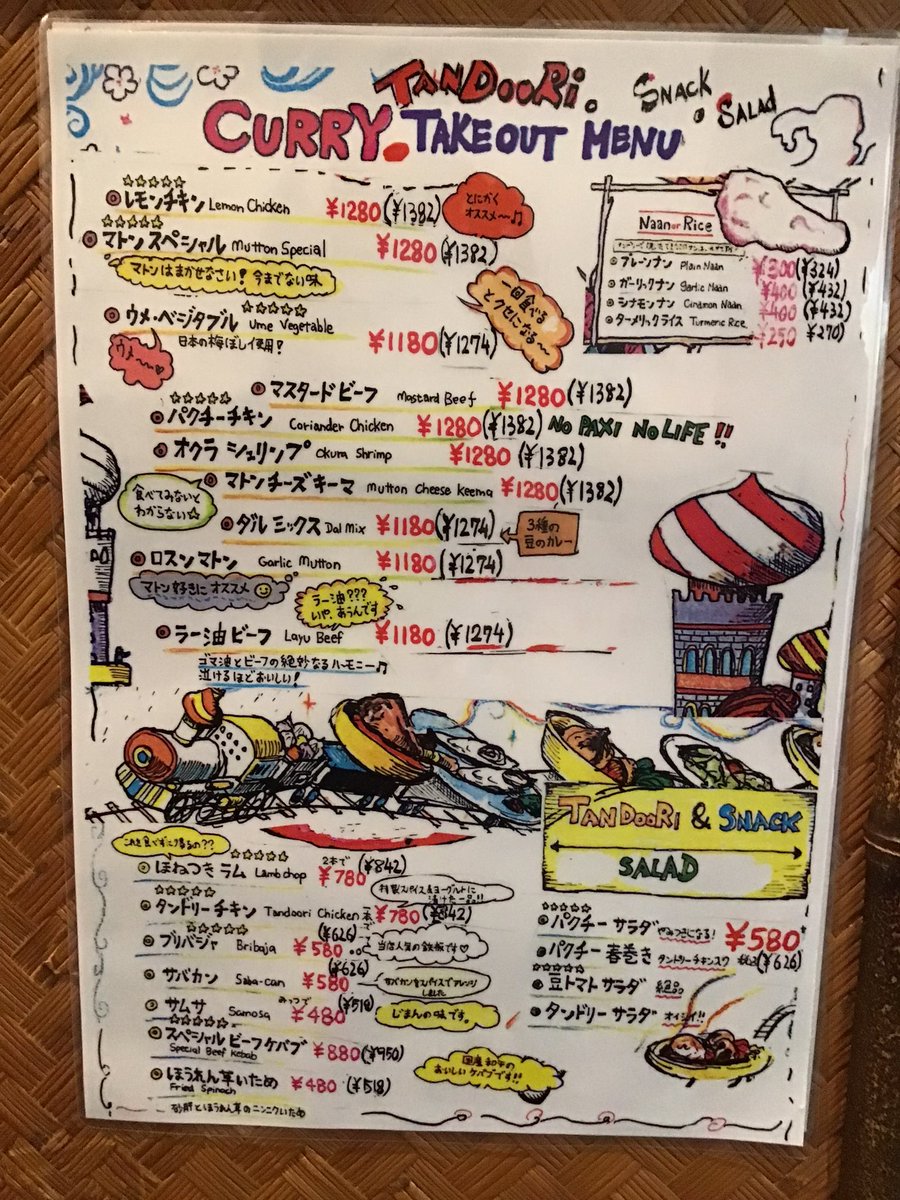 TANDOORi。
SNACK。SALAD
CURRY。TAKEOUT MENU
☆☆☆☆☆
レモンチキン Lemon Chicken ¥1280(¥1382)
とにかく
オススメ〜♫
☆☆☆☆☆
マトン スペシャル Mutton Special ¥1280(¥1382)
マトンはまかせなさい! 今までない味
一回食べる
とクセになる〜
☆☆☆☆☆
ウメ・ベジタブル Ume Vegetable ¥1180(¥1274)
日本の梅ぼし使用!
ウメ〜〜♡
Naan or Rice
プレーンナン Plain Naan ¥300(¥324)
ガーリックナン garlic Naan ¥400(¥432)
シナモンナン Cinamon Naan ¥400(¥432)
ターメリックライス Turmeric Rice ¥250 ¥270)
マスタードビーフ Mostard Beef ¥1280(¥1382)
☆☆☆☆☆
パクチーチキン Coriander Chicken ¥1280(¥1382) NO PAXI NO LIFE!!
オクラ シュリンプ Okura Shrimp ¥1280(¥1382)
マトンチーズキーマ Mutton Cheese keema ¥1280(¥1382)
食べてみないと
わからない☆
ダル ミックス Dal Mix ¥1180(¥1274)
3種の
豆のカレー
ロスンマトン Garlic Mutton ¥1180(¥1274)
マトン好きに オススメ
ラー油???
いや、あうんです
ラー油ビーフ Layu Beef ¥1180(¥1274)
ゴマ油とビーフの絶妙なるハーモニー♫
泣けるほどおいしい!
TANDOORI & SNACK
SALAD
これを食べずに帰るの??
☆☆☆☆☆
ほねつきラム Lamb chop 2本で ¥780 (¥842)
特製スパイス&ヨーグルトに
漬けた一品!!
☆☆☆☆☆
タンドリーチキン Tandoori Chicken ¥780(¥842)
ブリバジャ Bribaja ¥580 (¥626)
当店人気の鉄板です♡
サバカン Saba-can ¥580 (¥626)
サバカンをスパイスでアレンジ
しました
サムサ Samosa みっつで ¥480 (¥518)
じまんの味です。
☆☆☆☆☆
スペシャルビーフケバブ ¥880(¥950)
Special Beef Kebab
国産和牛の
おいしいケバブです!!
ほうれん草いため ¥480 (¥518)
Fried Spinach
砂肝とほうれん草のニンニクいため
☆☆☆☆☆
パクチー サラダ やみつきになる! ¥580
パクチー 春巻き (¥626)
☆☆☆☆☆
豆トマト サラダ 絶品
タンドリー サラダ オイシイ!!